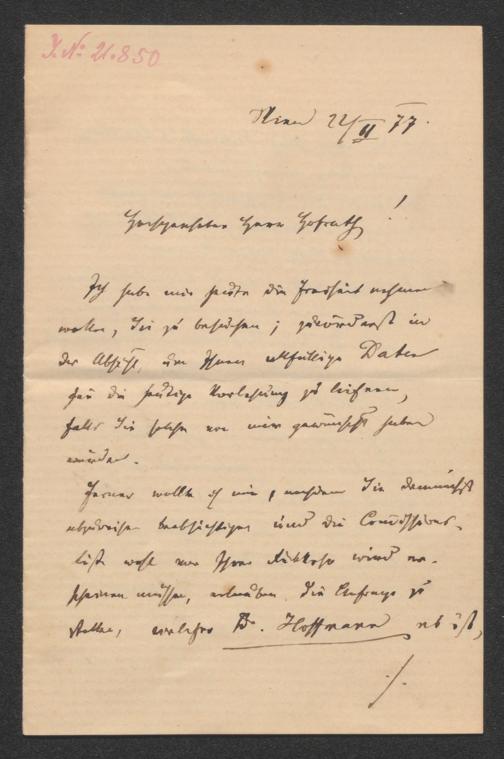 J. N: 21.850
Wien 22/II 77.
Hochgeehrter Herr Hofrath!
Ich habe mir heute die Freiheit nehmen
wollen, Sie zu besuchen; zuvörderst in
der Absicht, um Ihnen allfällige Daten
für die heutige Vorlesung zu liefern,
falls Sie solche von mir gewünscht haben
würden.
Ferner wollte ich mir, nachdem Sie demnächst
abzureisen beabsichtigen und die Commissions-
liste wohl vor Ihrer Rückkehr wird er-
scheinen müssen, erlauben die Anfrage zu
stellen, welcher Dr. Hoffmann es ist,
./.